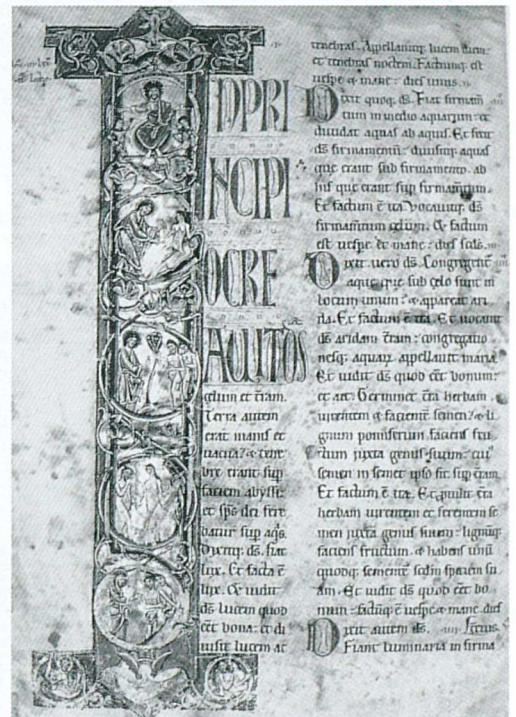 INPRI
NCIPI
OCRE
AUITDS
cęlum et t̄ram.
Terra autem
erat inanis et
uacua? & tene
bre erant sup
faciem abyssi:
et sp̄s dei fere
batur sup aq̄s.
Dixitq; d̄s. fiat
lux. Et facta ē
lux. Et uidit
d̄s lucem quod
eēt bona: et di
uisit lucem ac
tenebras. Appellauitq; lucem diem:
et tenebras noctem. Factumq; est
uespe & mane: dies unus.
Dixit quoq; d̄s. Fiat firmam̄
tum in medio aquarum: et
diuidat aquas ab aquis. Et fecit
d̄s firmamentū: diuisitq; aquas
que erant sub firmamento. ab
his que erant sup firmam̄tum.
Et factum ē ita. Vocauitq; d̄s
firmam̄tum celum. & factum
est uespe. & mane: dies scds.
Dixit uero d̄s. Congregent̄
aque que sub celo sunt in
locum unum? & appareat ari
da. Et factum ē ita. Et uocauit
d̄s aridam t̄ram: congregatio
nesq; aquarum appellauit maria.
Et uidit d̄s quod eēt bonum:
et ait. Germinet t̄ra herbam
uirentem & facientē semen? & li
gnum pomiferum faciens fru
ctum juxta genus suum: cui'
semen in semet ipso sit sup t̄ram.
Et factum ē ita. Et ptulit t̄ra
herbam uirentem et ferentem se
men juxta genus suum: lignūq;
faciens fructum. & habens unū
quodq; sementē scdm speciem su
am. Et uidit d̄s quod eēt bo
num: factūq; ē uespe & mane dies
Dixit autem d̄s. tercius.
Fiant luminaria in firma